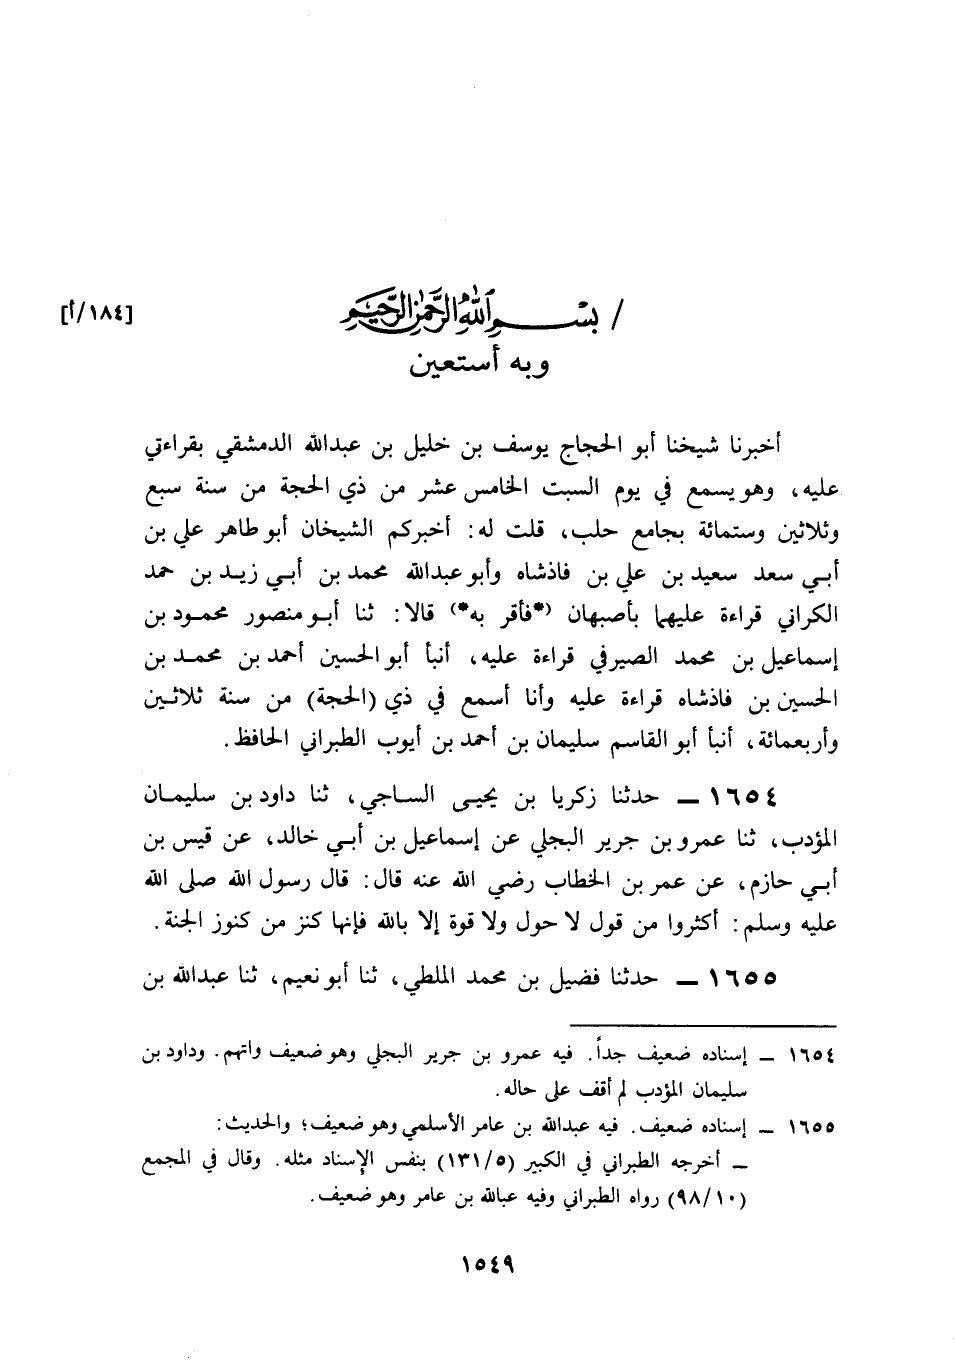 / بسم الله الرحمن الرحيم [١٨٤/أ]
وبه أستعين
أخبرنا شيخنا أبو الحجاج يوسف بن خليل بن عبدالله الدمشقي بقراءتي
عليه، وهو يسمع في يوم السبت الخامس عشر من ذي الحجة من سنة سبع
وثلاثين وستمائة بجامع حلب، قلت له: أخبركم الشيخان أبو طاهر علي بن
أبي سعد سعيد بن علي بن فاذشاه وأبو عبدالله محمد بن أبي زيد بن حمد
الكراني قراءة عليهما بأصبهان (*فأقر به*) قالا: ثنا أبو منصور محمود بن
إسماعيل بن محمد الصيرفي قراءة عليه، أنبأ أبو الحسين أحمد بن محمد بن
الحسين بن فاذشاه قراءة عليه وأنا أسمع في ذي (الحجة) من سنة ثلاثين
وأربعمائة، أنبأ أبو القاسم سليمان بن أحمد بن أيوب الطبراني الحافظ.
١٦٥٤ ــ حدثنا زكريا بن يحيى الساجي، ثنا داود بن سليمان
المؤدب، ثنا عمرو بن جرير البجلي عن إسماعيل بن أبي خالد، عن قيس بن
أبي حازم، عن عمر بن الخطاب رضي الله عنه قال: قال رسول الله صلى الله
عليه وسلم: أكثروا من قول لا حول ولا قوة إلا بالله فإنها كنز من كنوز الجنة.
١٦٥٥ ــ حدثنا فضيل بن محمد الملطي، ثنا أبو نعيم، ثنا عبدالله بن
١٦٥٤ ــ إسناده ضعيف جداً. فيه عمرو بن جرير البجلي وهو ضعيف واتهم. وداود بن
سليمان المؤدب لم أقف على حاله.
١٦٥٥ ــ إسناده ضعيف. فيه عبدالله بن عامر الأسلمي وهو ضعيف؛ والحديث:
ــ أخرجه الطبراني في الكبير (١٣١/٥) بنفس الإسناد مثله. وقال في المجمع
(٩٨/١٠) رواه الطبراني وفيه عبالله بن عامر وهو ضعيف.
١٥٤٩